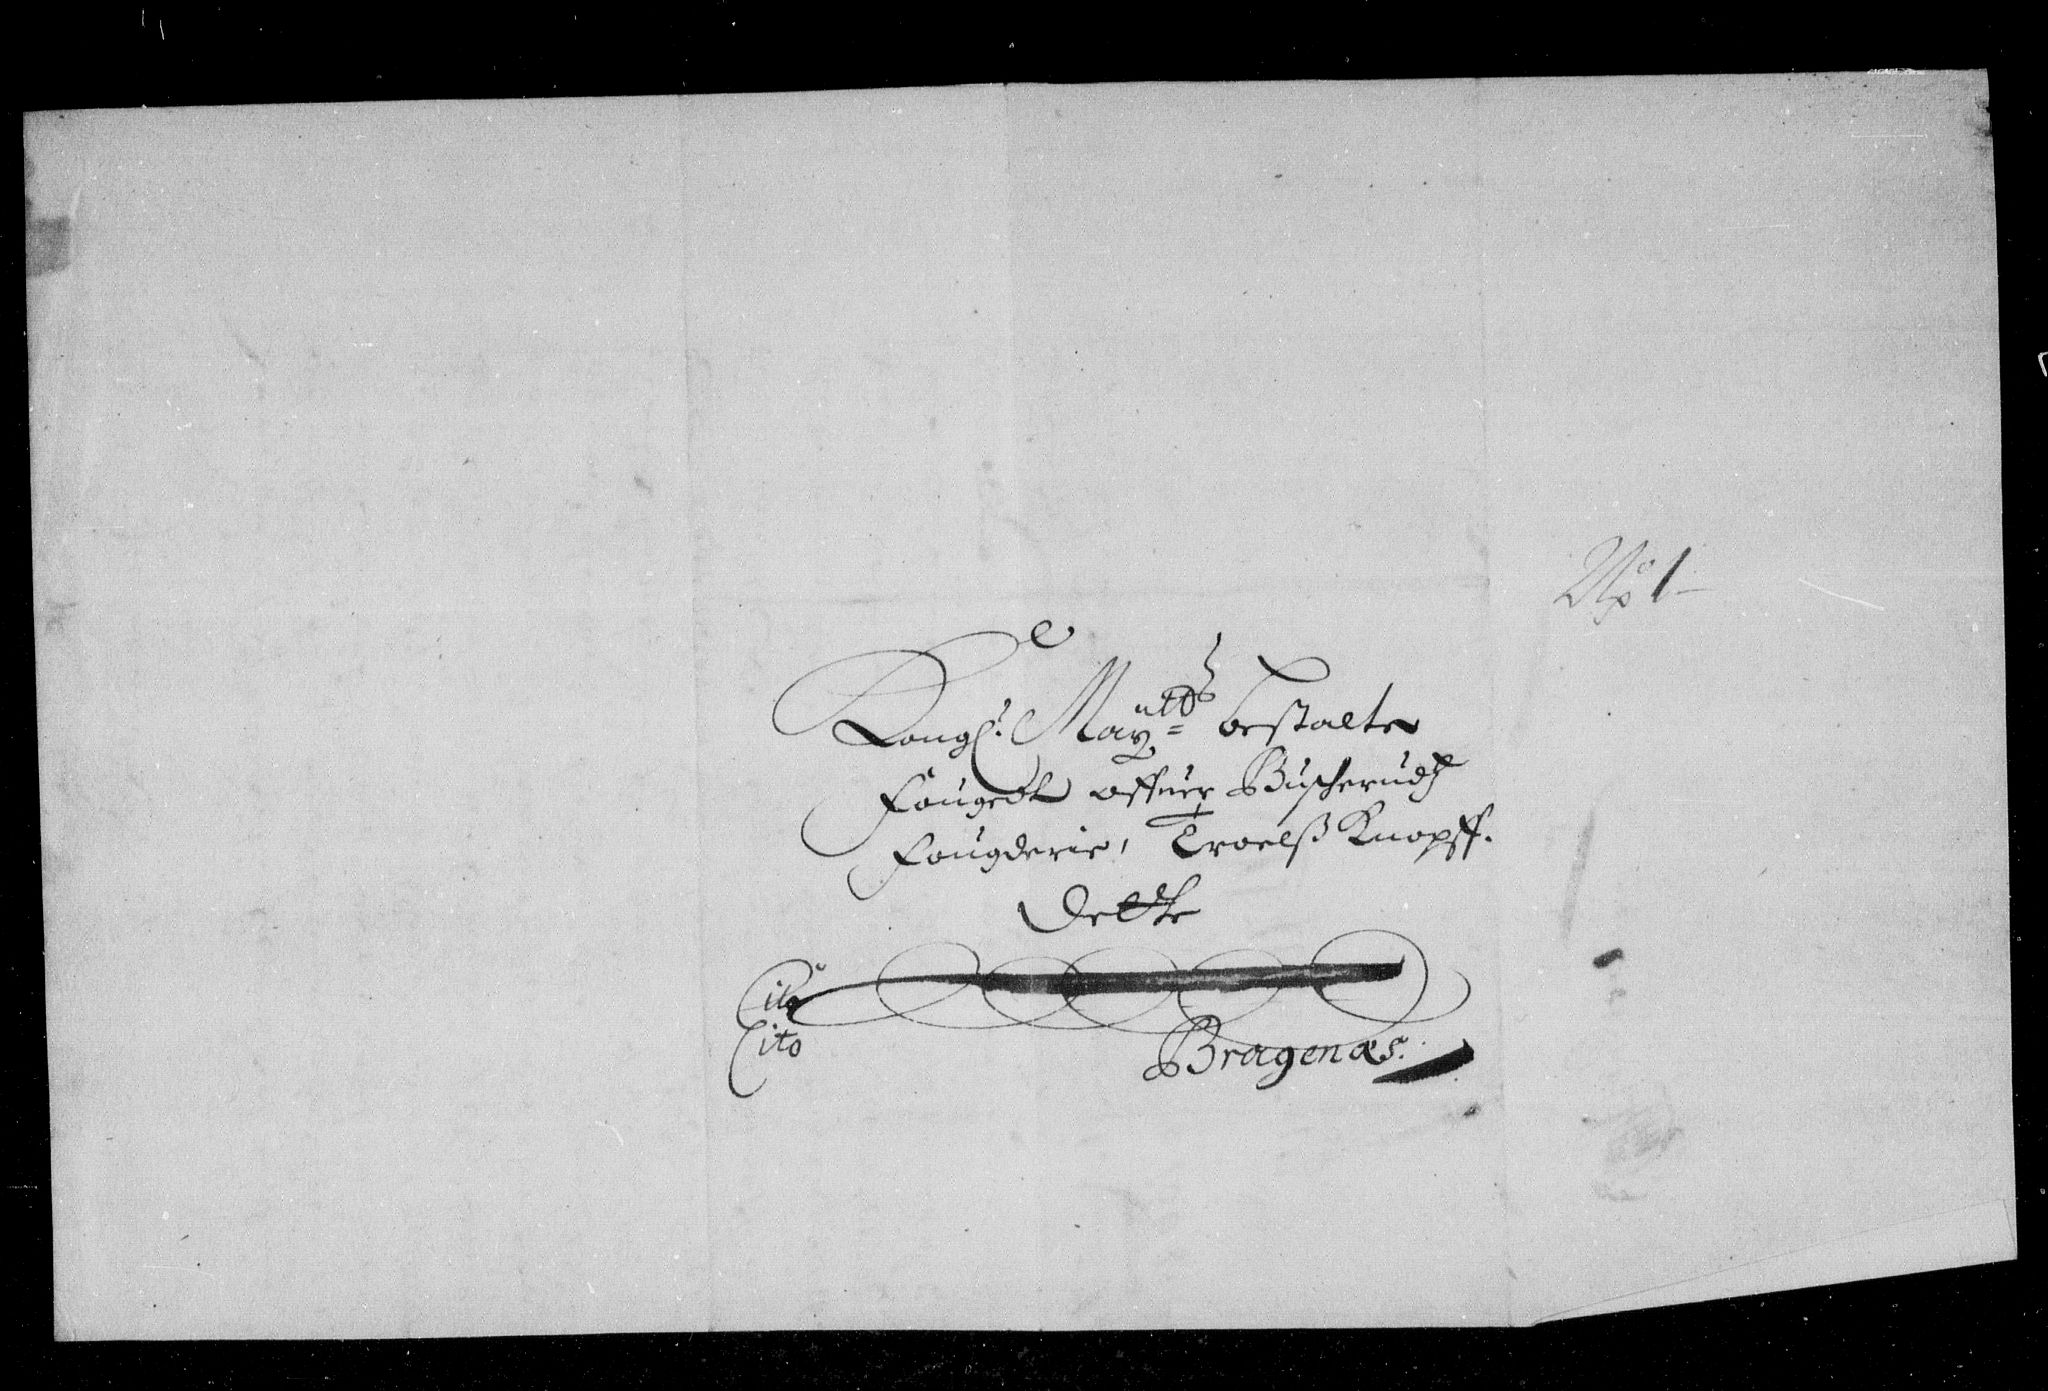 No 1
Kongl: Maÿtts bestalte
Fougedt offuer Buscheruds
Fougderie, Troelß Knopff.
Dette
Cito
Cito
Bragenæs.